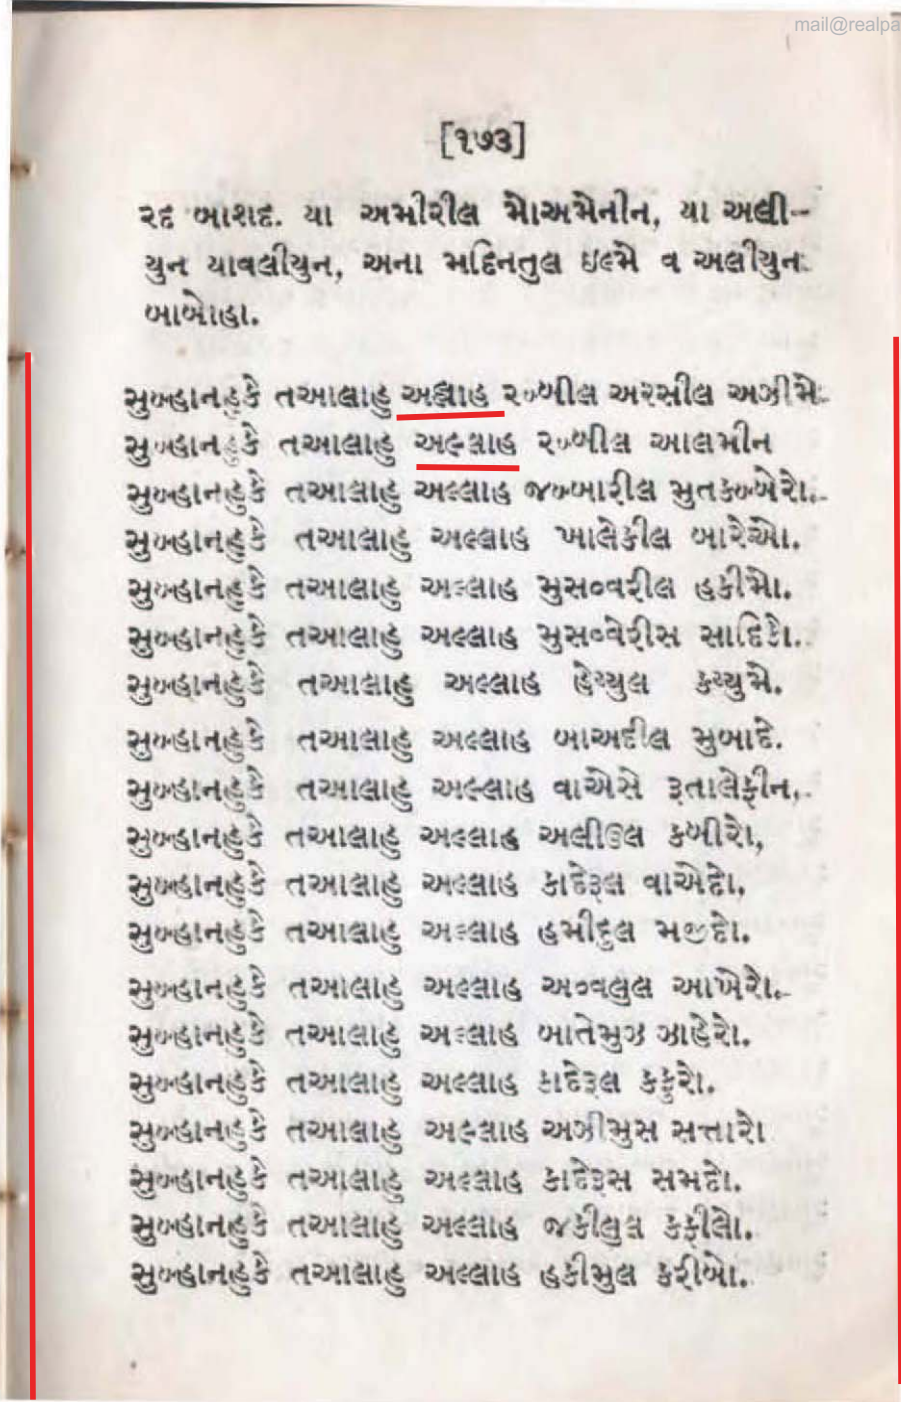 mail@realpa
[૧૭૩]
રદ બાશદ. યા અમીરીલ મોઅમેનીન, યા અલી-
યુન યાવલીયુન, અના મદિનતુલ ઇલ્મે વ અલીયુન
બાબોહા.
સુબ્હાનહુકે તઆલાહુ અલ્લાહ રબ્બીલ અરસીલ અઝીમે.
સુબ્હાનહુકે તઆલાહુ અલ્લાહ રબ્બીલ આલમીન
સુબ્હાનહુકે તઆલાહુ અલ્લાહ જબ્બારીલ મુતકબ્બેરો.
સુબ્હાનહુકે તઆલાહુ અલ્લાહ ખાલેકીલ બારેઓ.
સુબ્હાનહુકે તઆલાહુ અલ્લાહ મુસવ્વરીલ હકીમો.
સુબ્હાનહુકે તઆલાહુ અલ્લાહ મુસવ્વેરીસ સાદિકો.
સુબ્હાનહુકે તઆલાહુ અલ્લાહ હેય્યુલ કય્યુમે.
સુબ્હાનહુકે તઆલાહુ અલ્લાહ બાઅદીલ મુબાદે.
સુબ્હાનહુકે તઆલાહુ અલ્લાહ વાએસે રૂતાલેફીન,
સુબ્હાનહુકે તઆલાહુ અલ્લાહ અલીઉલ કબીરો,
સુબ્હાનહુકે તઆલાહુ અલ્લાહ કાદેરૂલ વાએદો,
સુબ્હાનહુકે તઆલાહુ અલ્લાહ હમીદુલ મજીદો.
સુબ્હાનહુકે તઆલાહુ અલ્લાહ અવ્વલુલ આખેરો.
સુબ્હાનહુકે તઆલાહુ અલ્લાહ બાતેમુઝ ઝાહેરો.
સુબ્હાનહુકે તઆલાહુ અલ્લાહ કાદેરૂલ કફુરો.
સુબ્હાનહુકે તઆલાહુ અલ્લાહ અઝીમુસ સત્તારો
સુબ્હાનહુકે તઆલાહુ અલ્લાહ કાદેરૂસ સમદો.
સુબ્હાનહુકે તઆલાહુ અલ્લાહ જકીલુલ કફીલો.
સુબ્હાનહુકે તઆલાહુ અલ્લાહ હકીમુલ કરીબો.